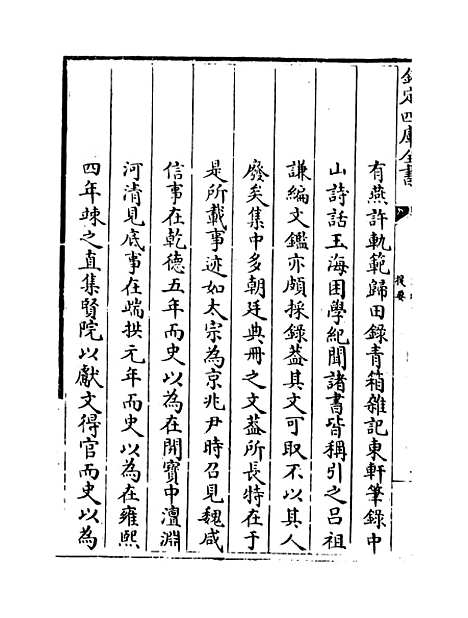 欽定四庫全書
提要
有燕許軌範歸田錄青箱雜記東軒筆錄中
山詩話玉海困學紀聞諸書皆稱引之呂祖
謙編文鑑亦頗採錄葢其文可取不以其人
廢矣集中多朝廷典冊之文葢所長特在于
是所載事迹如太宗為京兆尹時召見魏咸
信事在乾德五年而史以為在開寶中澶淵
河清見底事在端拱元年而史以為在雍熙
四年竦之直集賢院以獻文得官而史以為